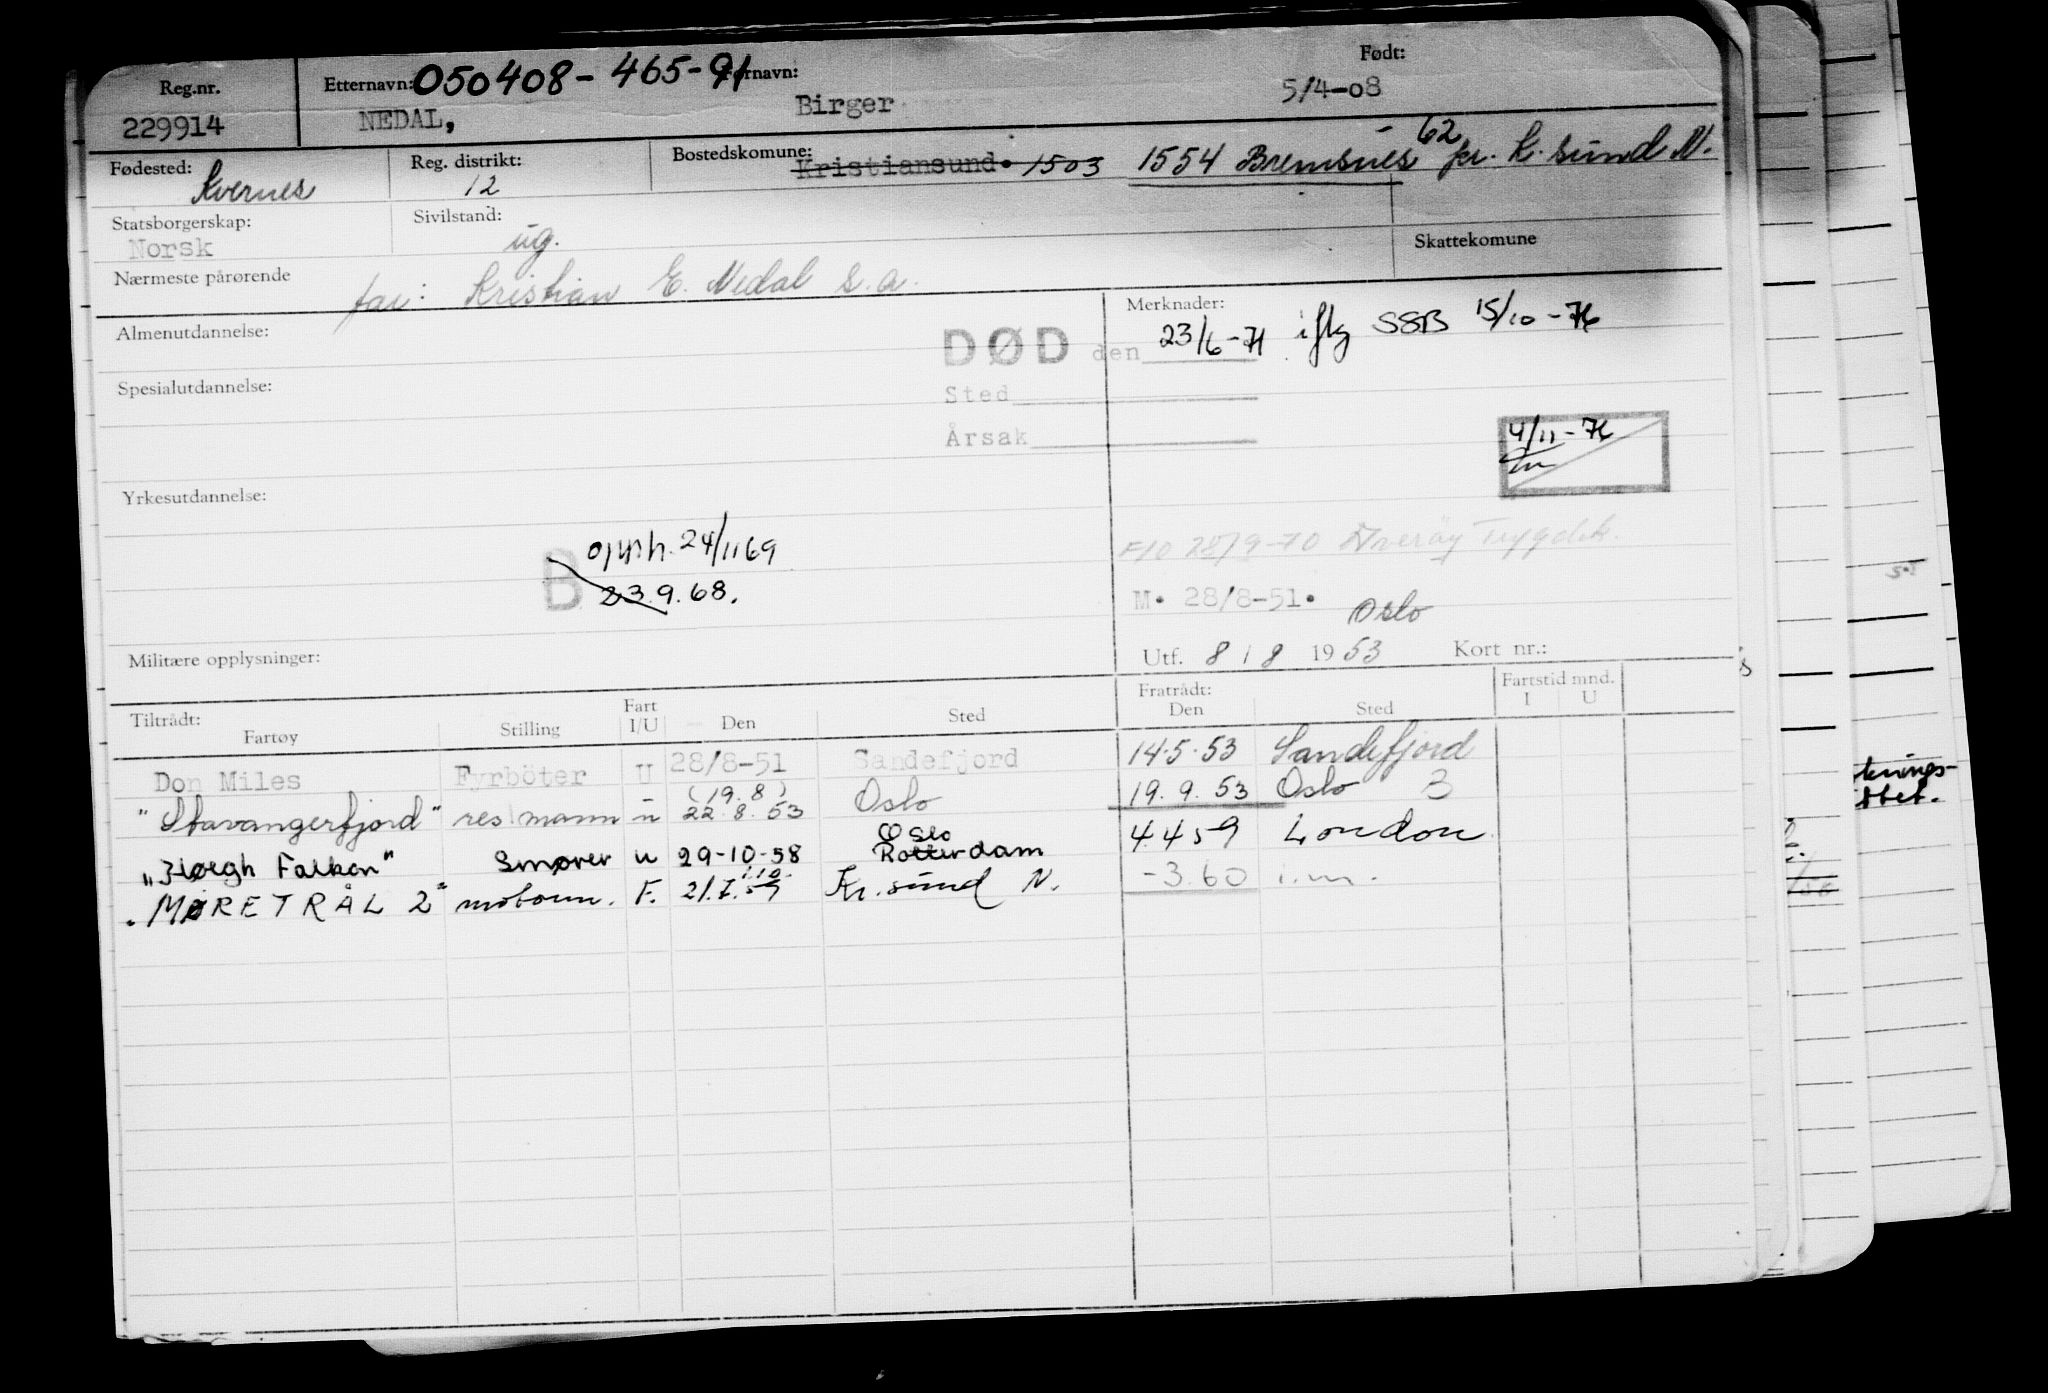 Reg.nr. Etternavn: 050408-465-91 Fornavn: Født:
229914 NEDAL, Birger 5/4-08
Fødested: Kvernes Reg. distrikt: 12 Bostedskomune: Kristiansund. 1503 1554 Bremsnes 62 pr. K. sund N.
Statsborgerskap: Norsk Sivilstand: ug. Skattekomune
Nærmeste pårørende far: Kristian E. Nedal s.a.
Almenutdannelse: Merknader:
DØD den 23/6-71 iflg SSB 15/10-76
Spesialutdannelse: Sted
Årsak 4/11-76
Yrkesutdannelse:
B opph. 24/11 69
23.9.68.
F10 28/9-70 Averøy Trygdek.
M. 28/8-51. Oslo
Militære opplysninger: Utf. 8 / 8 1953 Kort nr.:
Tiltrådt: Fratrådt: Fartstid mnd.
Fartøy Stilling Fart I/U Den Sted Den Sted I U
Don Miles Fyrböter U 28/8-51 Sandefjord 14.5.53 Sandefjord
"Stavangerfjord" res mann u (19.8) 22.8.53 Oslo 19.9.53 Oslo 3
"Høegh Falken" Smører u 29-10-58 Oslo Rotterdam 4.4 59 London
"MØRETRÅL 2" motorm. F. 21.7.59 1.10. Kr. sund N. -3.60 i.m.